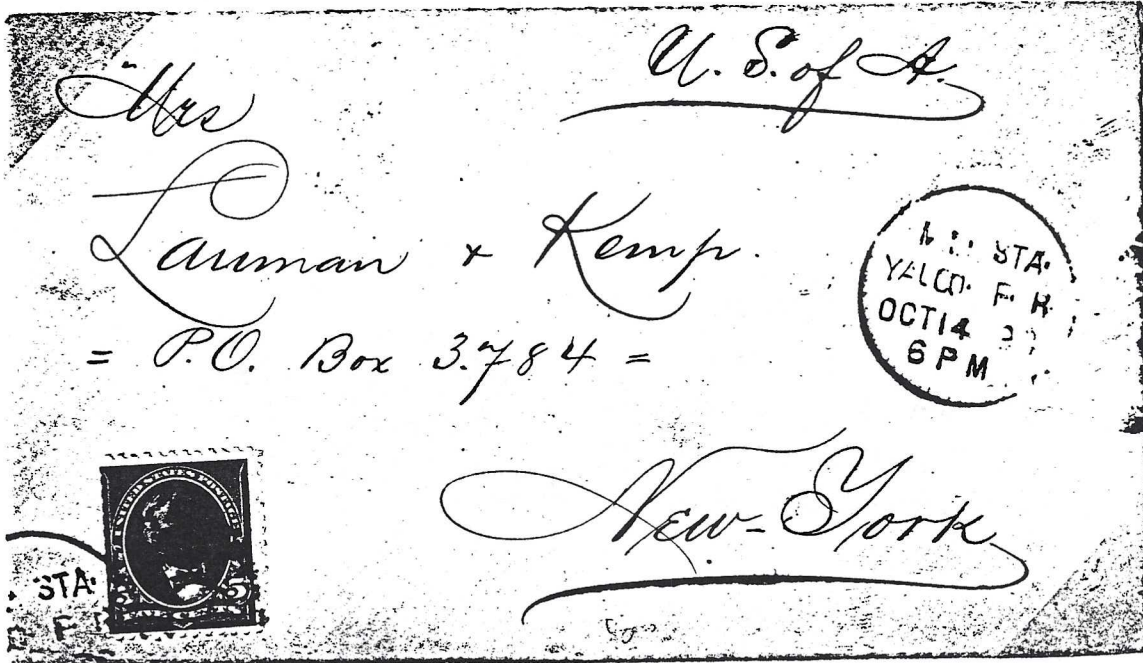 U. S. of A.
Mrs
Lanman & Kemp.
= P.O. Box 3.784 =
STA.
YAUCO. P. R.
OCT 14
6 PM
New-York
UNITED STATES POSTAGE
5 5
FIVE CENTS
STA.